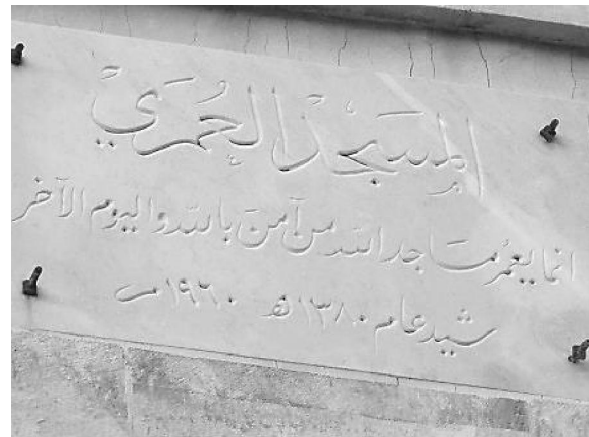 المسجد العُمَريْ
انما يعمُر مسَاجد الله من آمنَ بالله واليوم الآخر
شيد عام ١٣٨٠ هـ ١٩٦٠ م